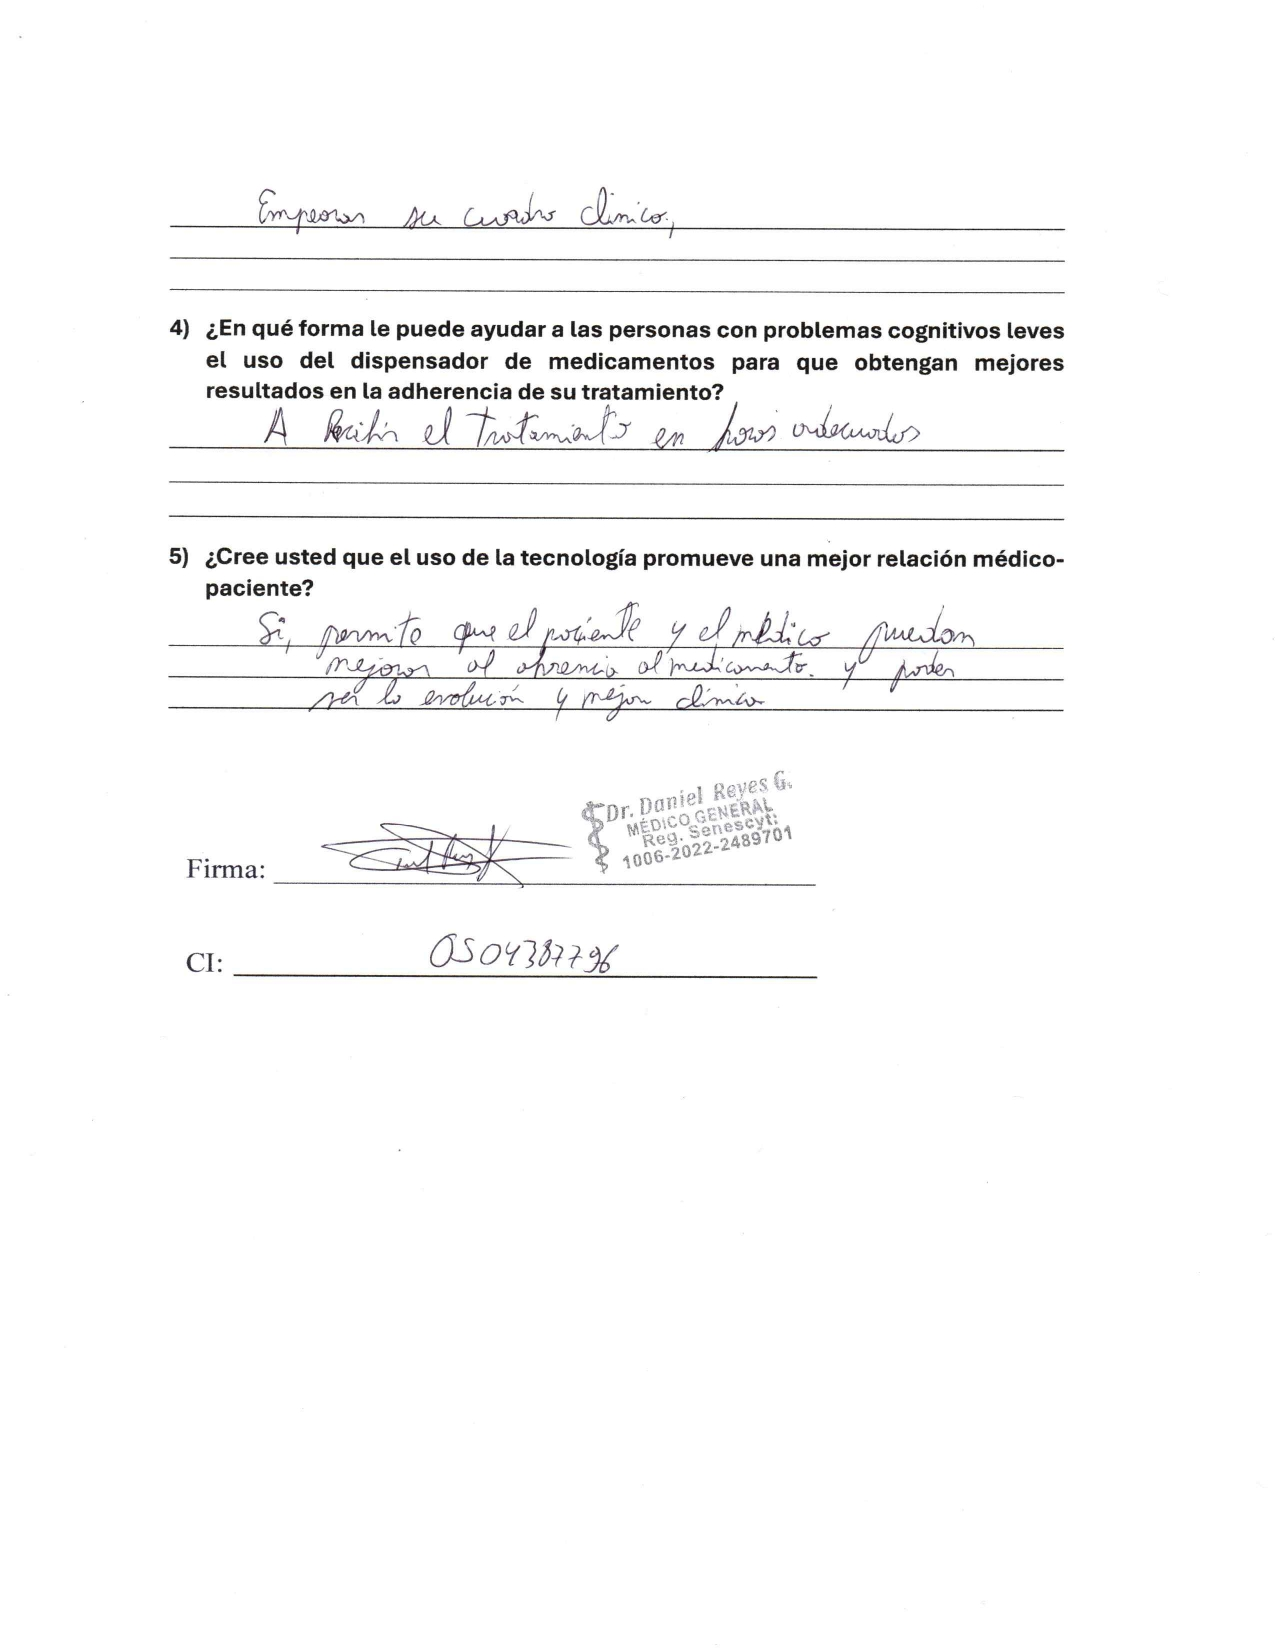 Empeorar su cuadro clinico,
4) ¿En qué forma le puede ayudar a las personas con problemas cognitivos leves
el uso del dispensador de medicamentos para que obtengan mejores
resultados en la adherencia de su tratamiento?
A Recibir el tratamiento en horas adecuadas
5) ¿Cree usted que el uso de la tecnología promueve una mejor relación médico-
paciente?
Si, permite que el paciente y el médico puedan
mejorar al al medicamento. y poder
la evolución y mejor clinica
Dr. Daniel Reyes G.
MÉDICO GENERAL
Reg. Senescyt:
1006-2022-2489701
Firma:
CI: 0504387796